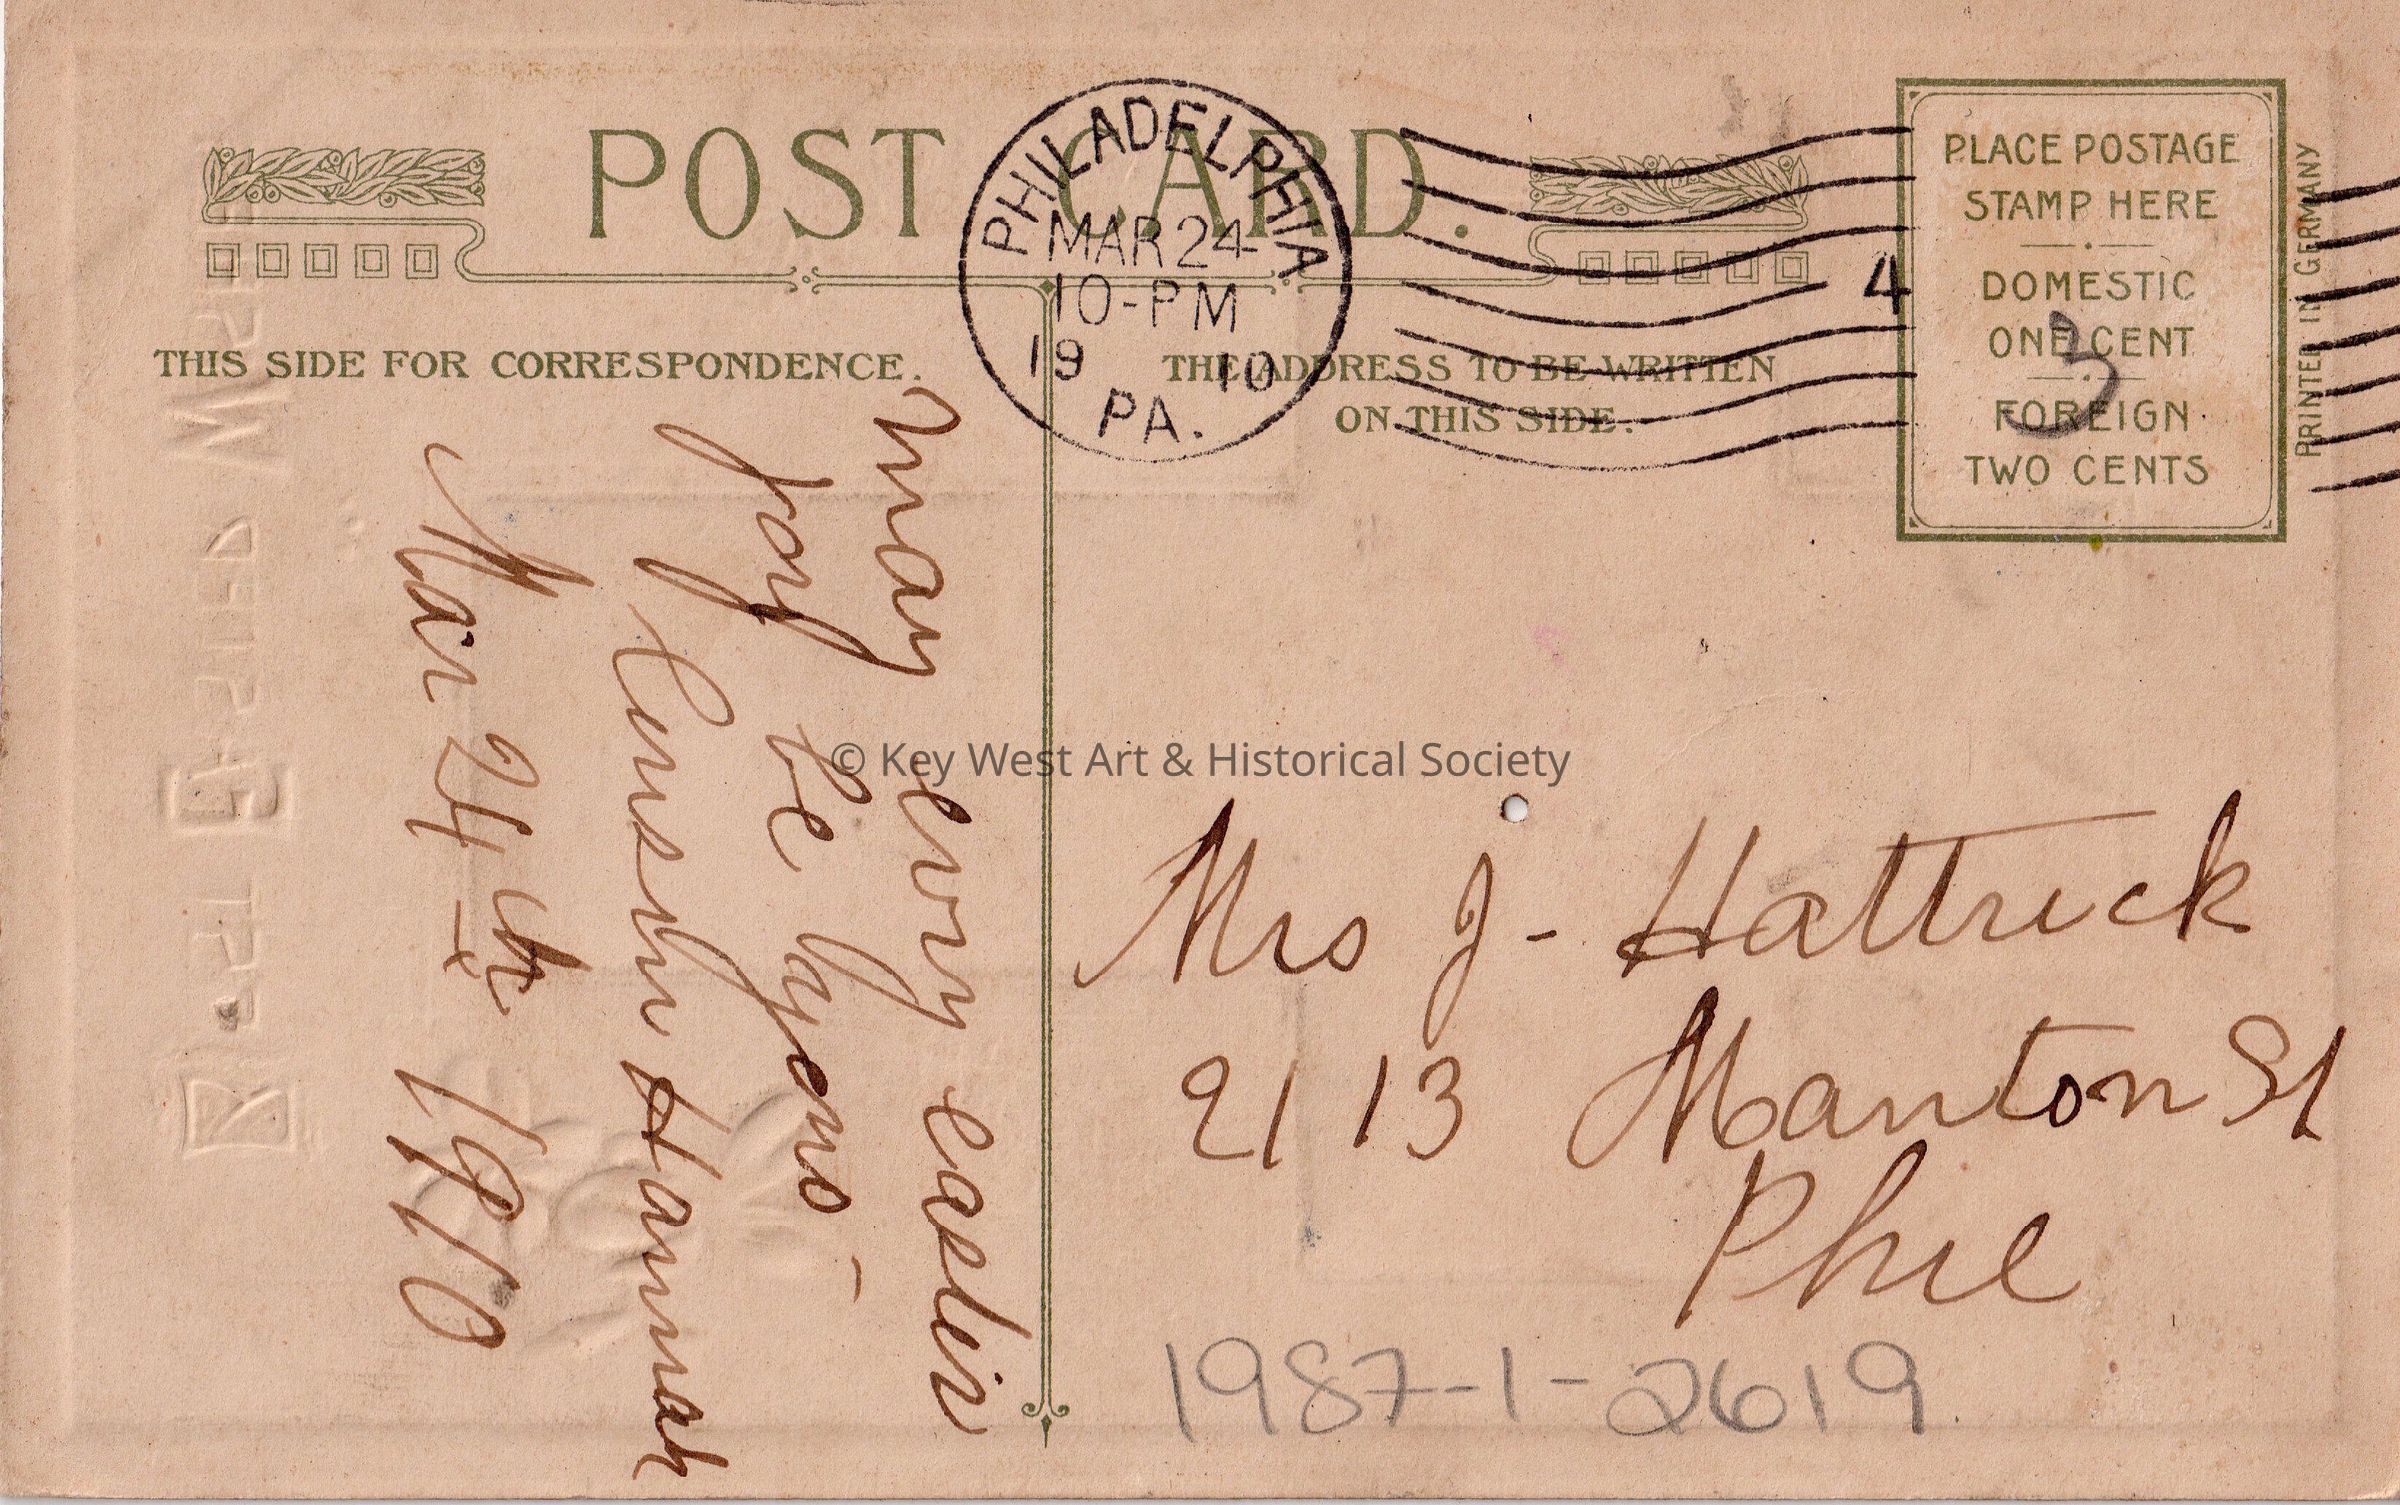 POST CARD.
PHILADELPHIA
MAR 24
10-PM
19 10
PA.
4
PLACE POSTAGE
STAMP HERE
DOMESTIC
ONE CENT
FOREIGN
TWO CENTS
3
PRINTED IN GERMANY
THIS SIDE FOR CORRESPONDENCE.
THE ADDRESS TO BE WRITTEN
ON THIS SIDE.
May evry easter
joy be yours -
Cousin Hannah
Mar 24th 1910
© Key West Art & Historical Society
Mrs J - Hattrick
2113 Manton St
Phil
1987-1-2619